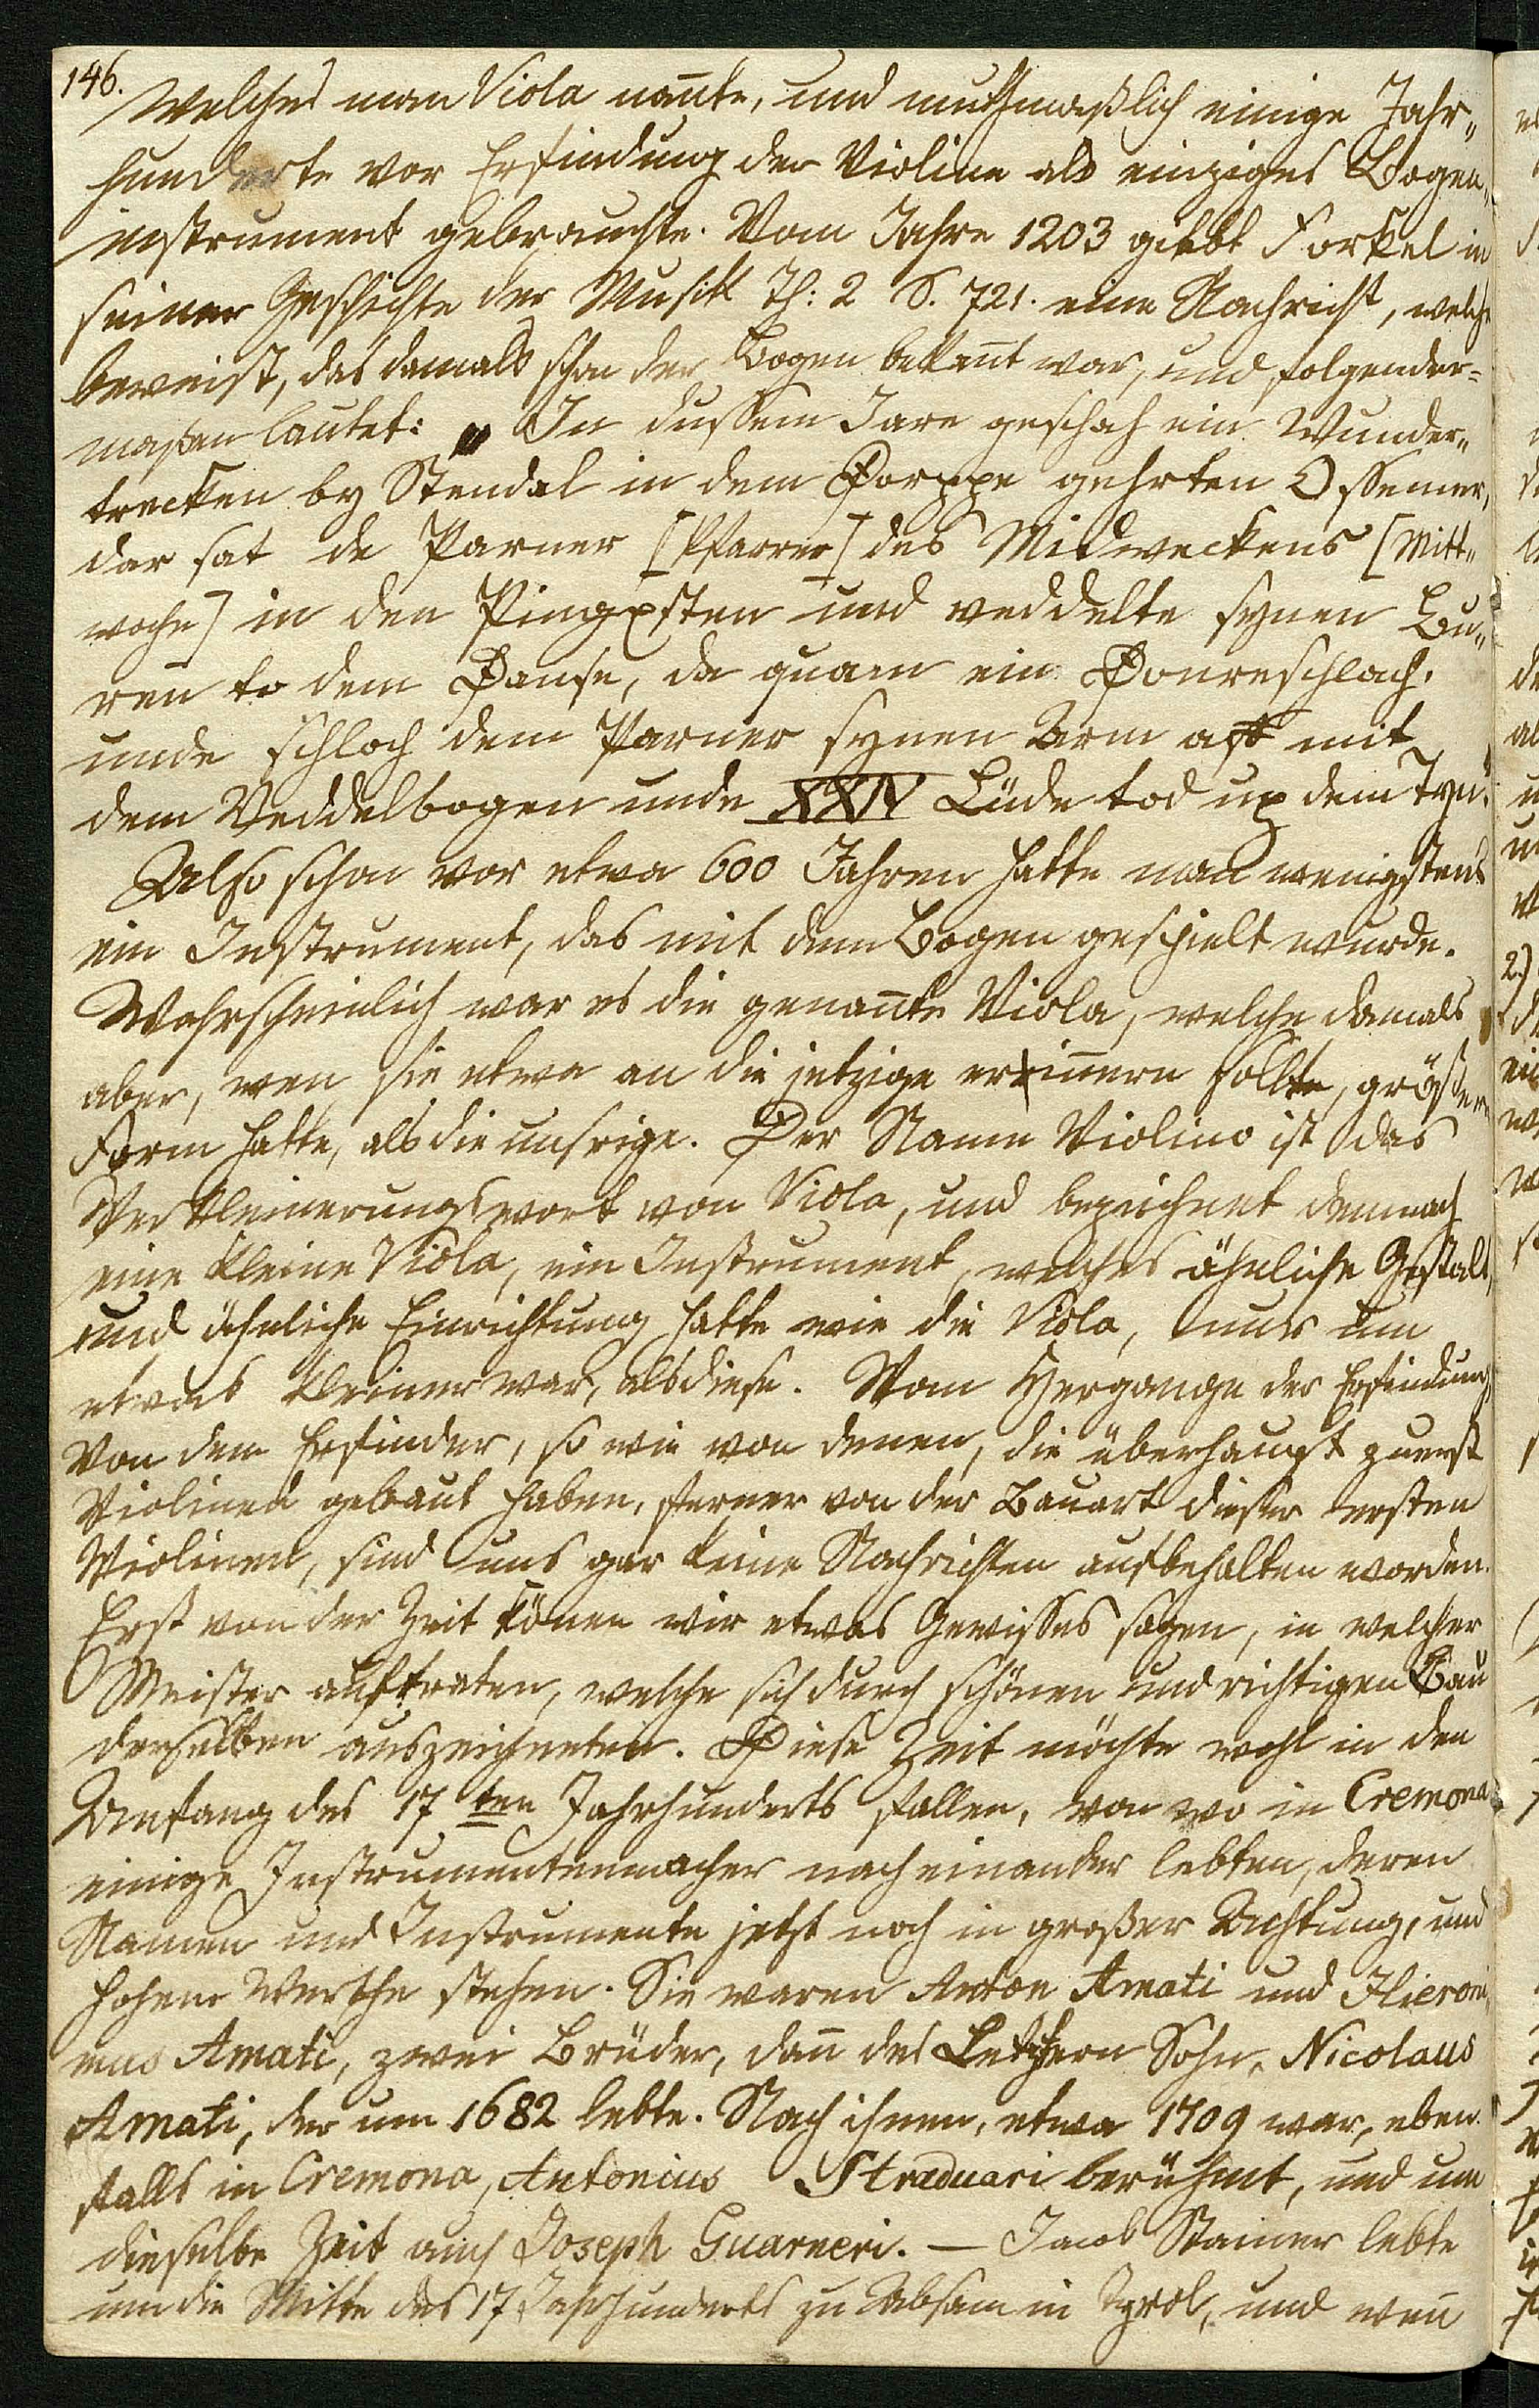 146.
welches man Viola nan̄te, und muthmaßlich einige Jahr„
hunderte vor Erfindung der Violine als einziges Bogen„
instrument gebrauchte. Vom Jahre 1203 giebt Forkel in
seiner Geschichte der Musik Th: 2 S. 721. eine Nachricht, welche
beweist, das damals schon der Bogen bekan̄t war, und folgender=
maßen lautet: „ In dussem Jare geschah ein Wunder„
trecken by Stendal in dem Dorppe gehrten Ossemer,
dar sat de Parner [Pfarrer] des Midweckens [Mitt„
woche] in den Pingxsten und veddelte synen Bu„
ren to dem Danse, da quam ein Donreschlach,
unde schloch dem Parner synen Arm aff mit
dem Veddelbogen unde XXIV Lüde tod up dem Tyn."
Also schon vor etwa 600 Jahren hatte man wenigstens
ein Instrument, das mit dem Bogen gespielt wurde.
Wahrscheinlich war es die genan̄te Viola, welche damals
aber, wen sie etwa an die jetzige erin̄ern sollte, größere
Form hatte, als die unsrige. Der Name Violino ist das
Verkleinerungswort von Viola, und bezeichnet demnach
eine kleine Viola, ein Instrument, welches ähnliche Gestalt,
und ähnliche Einrichtung hatte wie die Viola, nur um
etwas kleiner war, als diese. Vom Hergange der Erfindung,
von dem Erfinder, so wie von denen, die überhaupt zuerst
Violinen gebaut haben, ferner von der Bauart dieser ersten
Violinen, sind uns gar keine Nachrichten aufbehalten worden.
Erst von der Zeit kön̄en wir etwas Gewisses sagen, in welcher
Meister auftraten, welche sich durch schönen und richtigen Bau
derselben auszeichneten. Diese Zeit möchte wohl in den
Anfang des 17 ten Jahrhunderts fallen, von wo in Cremona
einige Instrumentenmacher nach einander lebten, deren
Namen und Instrumente jetzt noch in großer Achtung, und
hohem Werthe stehen. Sie waren Anton Amati und Hieroni„
mus Amati, zwei Brüder, dan̄ des Letztern Sohn, Nicolaus
Amati, der um 1682 lebte. Nach ihnen, etwa 1709 war, eben„
falls in Cremona, Antonius Straduari berühmt, und um
dieselbe Zeit auch Joseph Guarneri. — Jacob Stainer lebte
um die Mitte des 17 Jahrhunderts zu Absam in Tyrol, und wen̄